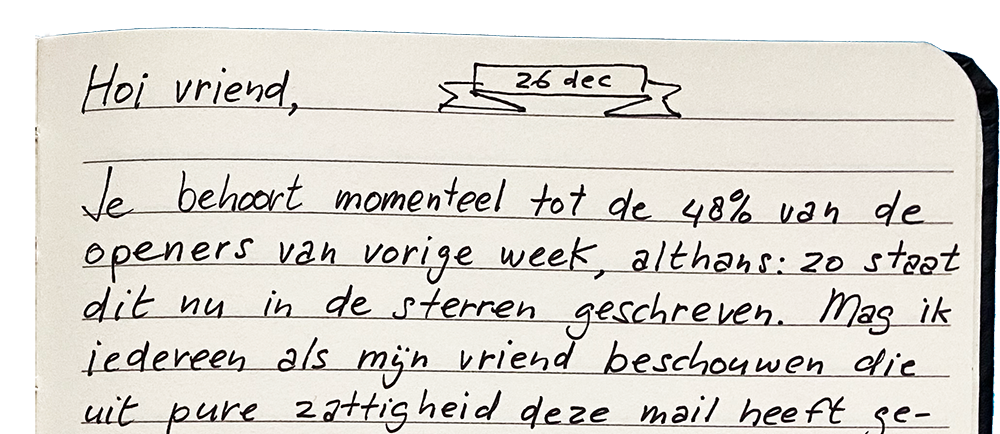 Hoi vriend,
26 dec
Je behoort momenteel tot de 48% van de
openers van vorige week, althans: zo staat
dit nu in de sterren geschreven. Mag ik
iedereen als mijn vriend beschouwen die
uit pure zattigheid deze mail heeft ge-